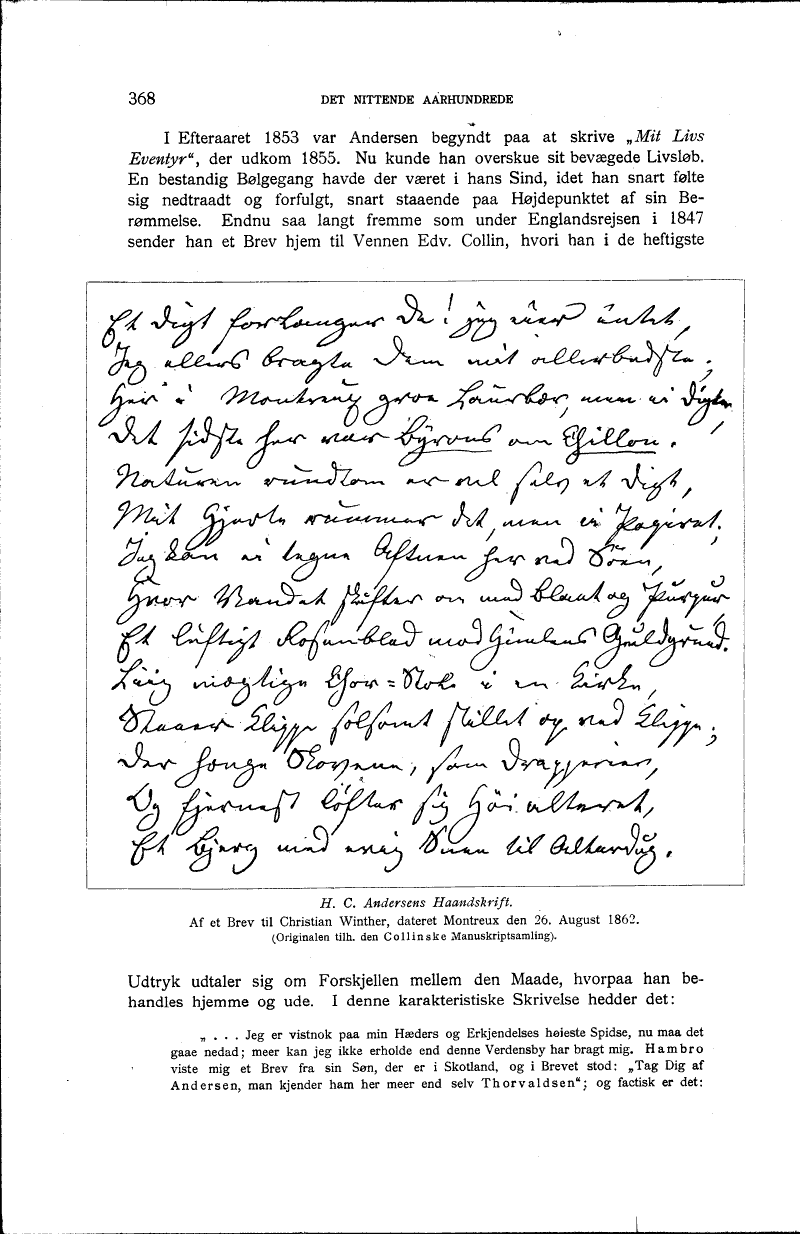 368
DET NITTENDE AARHUNDREDE
I Efteraaret 1853 var Andersen begyndt paa at skrive „Mit Livs
Eventyr“, der udkom 1855. Nu kunde han overskue sit bevægede Livsløb.
En bestandig Bølgegang havde der været i hans Sind, idet han snart følte
sig nedtraadt og forfulgt, snart staaende paa Højdepunktet af sin Be-
rømmelse. Endnu saa langt fremme som under Englandsrejsen i 1847
sender han et Brev hjem til Vennen Edv. Collin, hvori han i de heftigste
Et Digt forlanger De! jeg eier intet,
Jeg ellers bragte Dem mit allerbedste;
Her i Montreux groe Laurbær, men ei Digte,
Det sidste her var Byrons om Chillon.
Naturen rundtom er vel selv et Digt,
Mit Hjerte rummer det, men ei Papiret;
Jeg kan ei tegne Aftnen her ved Søen,
Hvor Vandet skifter om med blaat og Purpur
Et luftigt Rosenblad mod Himlens Guldgrund.
Liig mægtige Chor=Stole i en Kirke,
Staaer Klippe solsomt stillet op ved Klippe;
Der hænge Skovene, som Draperier,
Og fjernest løfter sig Høialteret,
Et Bjerg med evig Snee til Alterdug.
H. C. Andersens Haandskrift.
Af et Brev til Christian Winther, dateret Montreux den 26. August 1862.
(Originalen tilh. den Collinske Manuskriptsamling).
Udtryk udtaler sig om Forskjellen mellem den Maade, hvorpaa han be-
handles hjemme og ude. I denne karakteristiske Skrivelse hedder det:
„ . . . Jeg er vistnok paa min Hæders og Erkjendelses høieste Spidse, nu maa det
gaae nedad; meer kan jeg ikke erholde end denne Verdensby har bragt mig. Hambro
viste mig et Brev fra sin Søn, der er i Skotland, og i Brevet stod: „Tag Dig af
Andersen, man kjender ham her meer end selv Thorvaldsen“; og factisk er det: